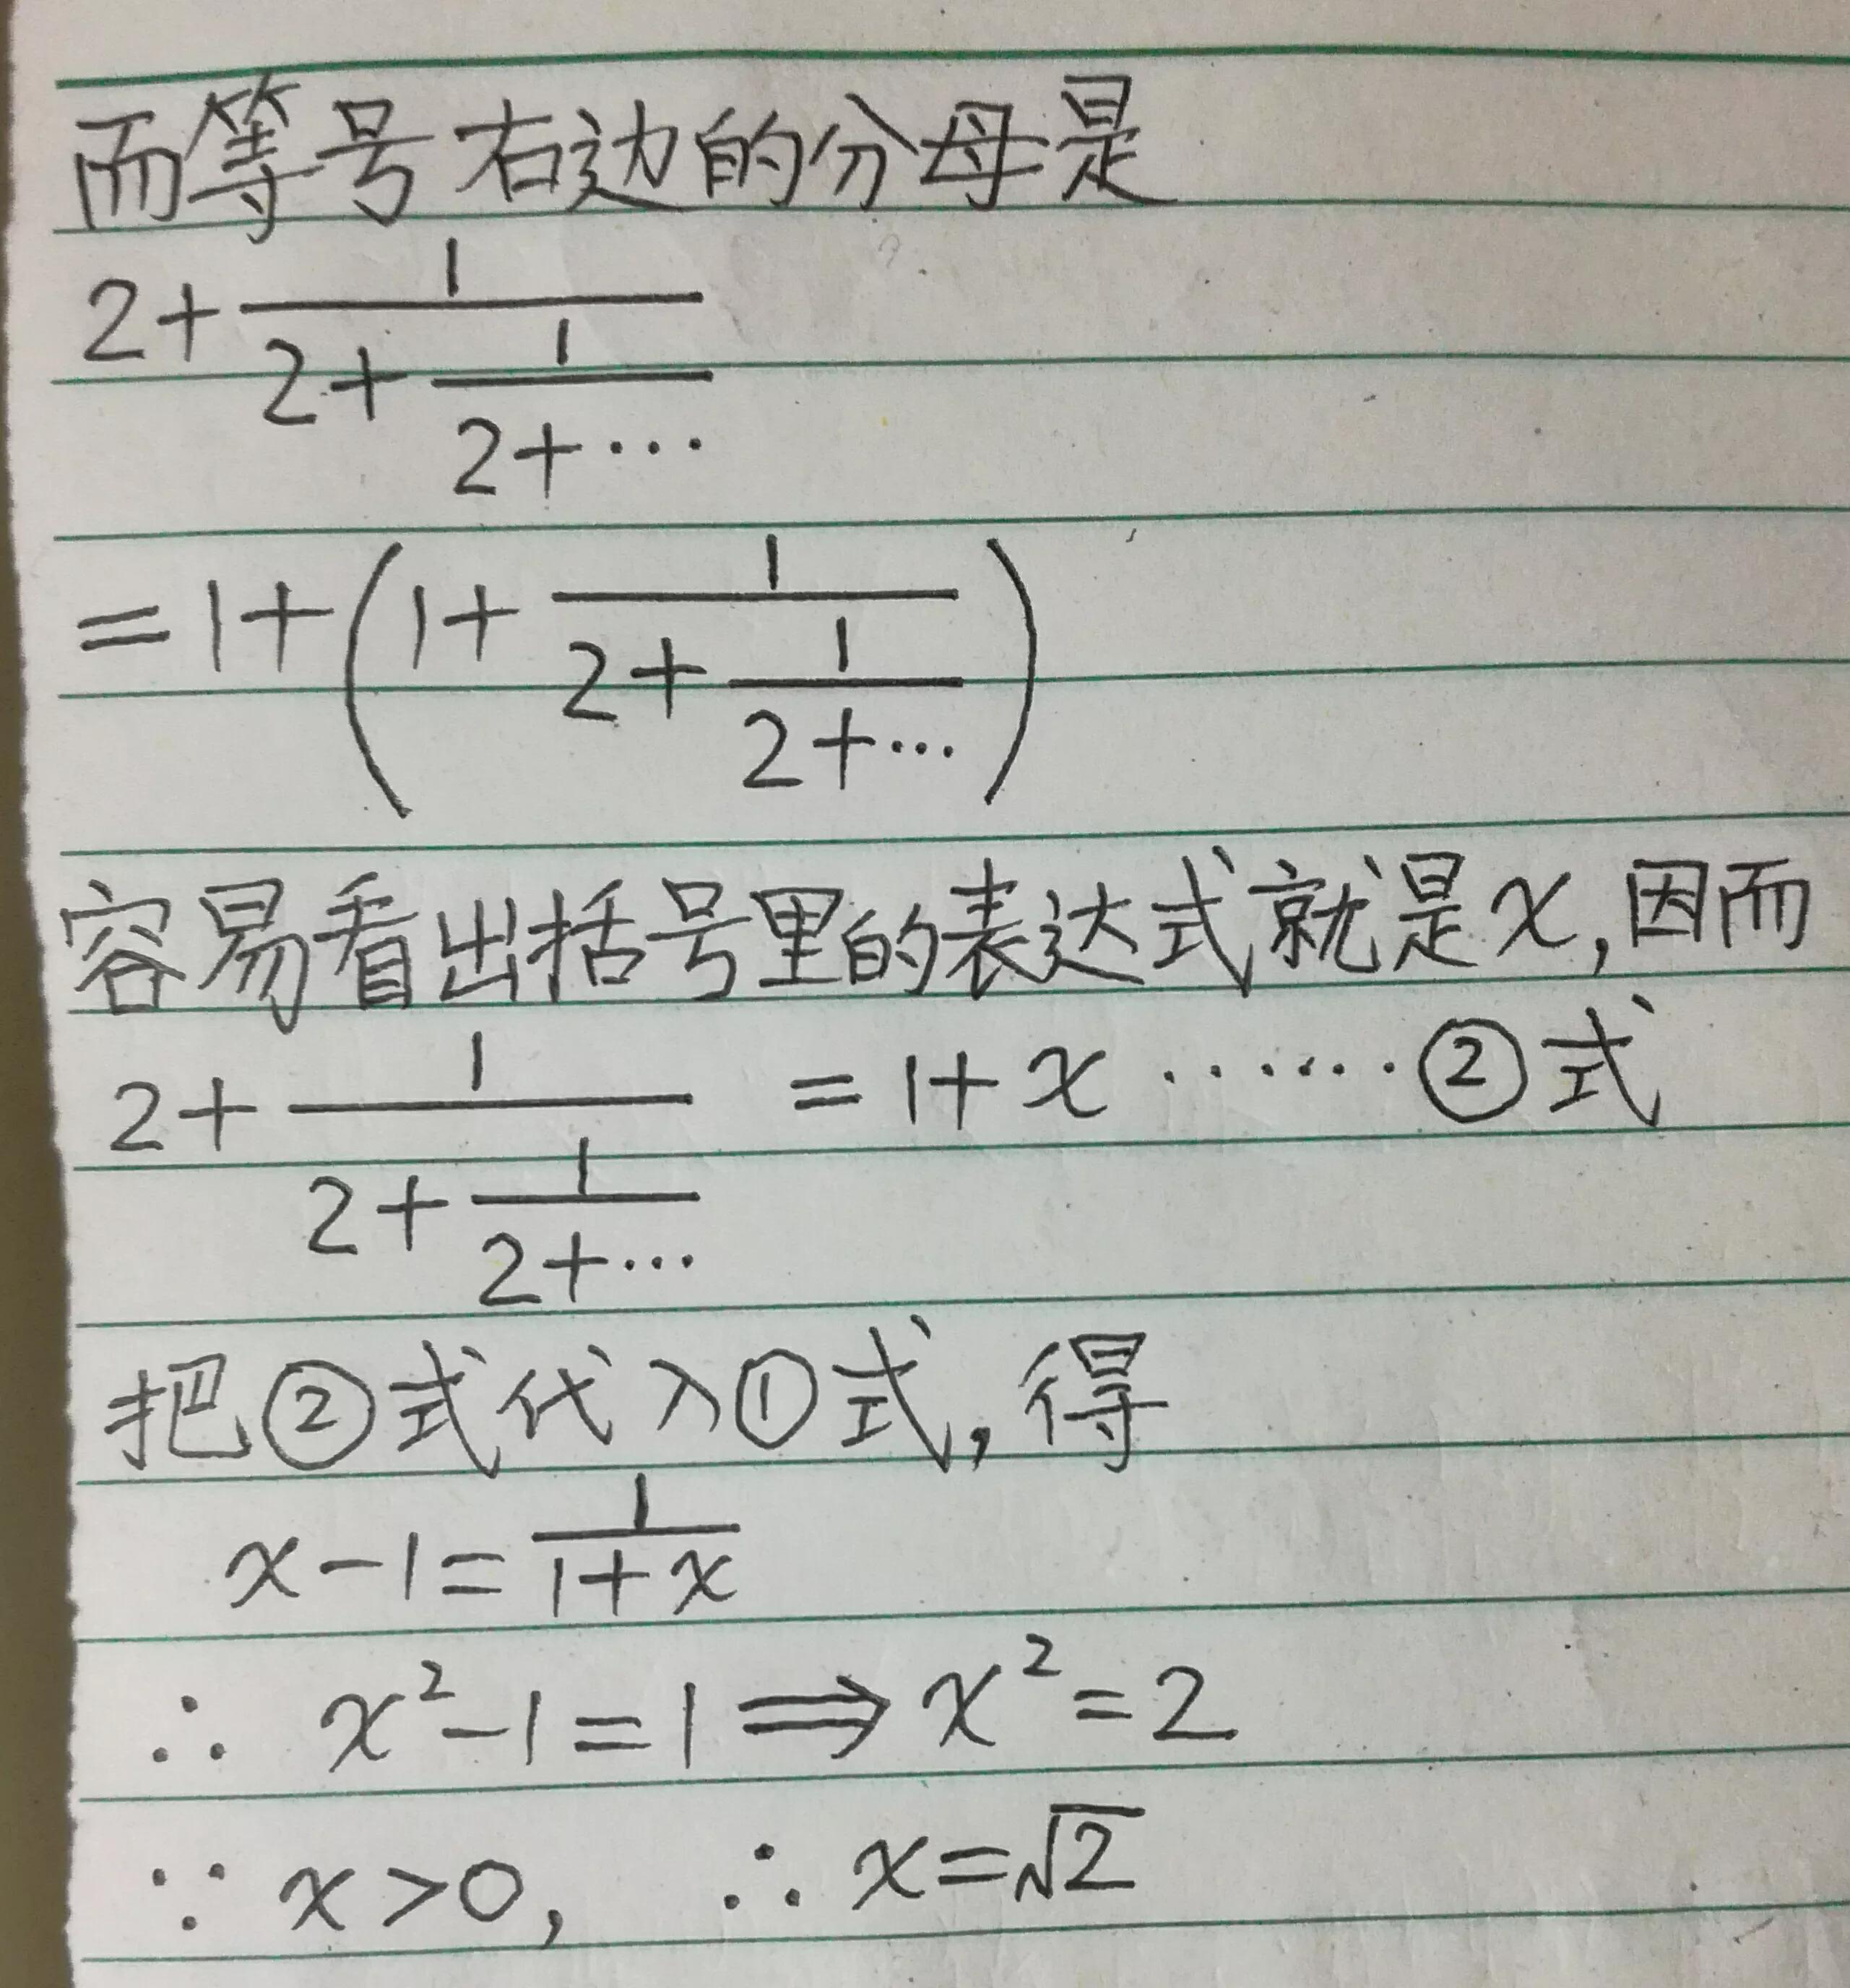 而等号右边的分母是
2+\frac{1}{2+\frac{1}{2+\cdots}}
=1+\left(1+\frac{1}{2+\frac{1}{2+\cdots}}\right)
容易看出括号里的表达式就是x,因而
2+\frac{1}{2+\frac{1}{2+\cdots}} =1+x ⋯⋯ ②式
把②式代入①式,得
x-1=\frac{1}{1+x}
∴ x²-1=1⟹x²=2
∵ x>0, ∴ x=√2